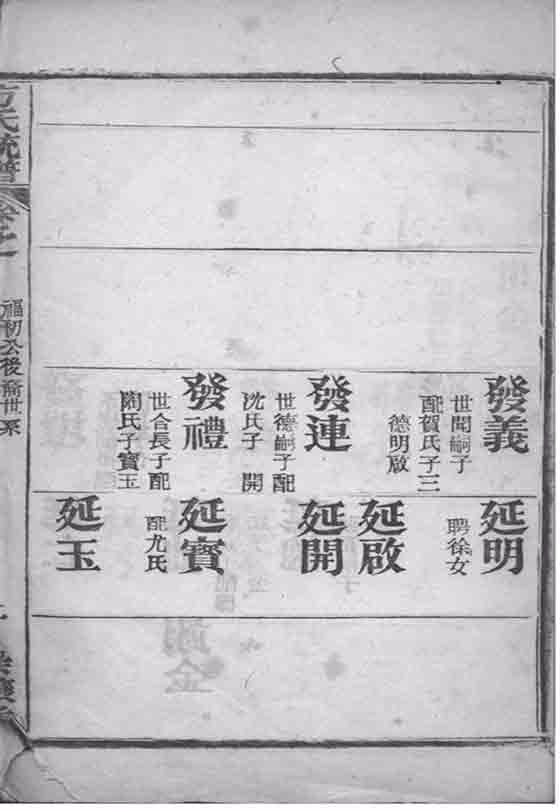 發義
世聞嗣子
配賀氏子三
德明啟
發連
世德嗣子配
沈氏子 開
發禮
世合長子配
陶氏子寶玉
延明
聘徐女
延啟
延開
延寶
配尤氏
延玉
方氏統譜
卷之一
福初公後裔世系